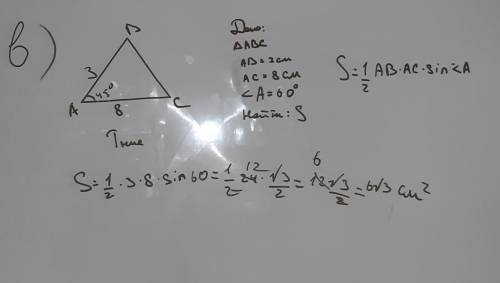 в)
B
3
A 45°
8
C
Дано:
△ABC
AB = 3 см
AC = 8 см
∠A = 60°
Найти: S
S = 1/2 AB · AC · sin ∠A
S = 1/2 · 3 · 8 · sin 60 = 1/2 24 12 · √3/2 = 12 6 √3/2 = 6√3 см²